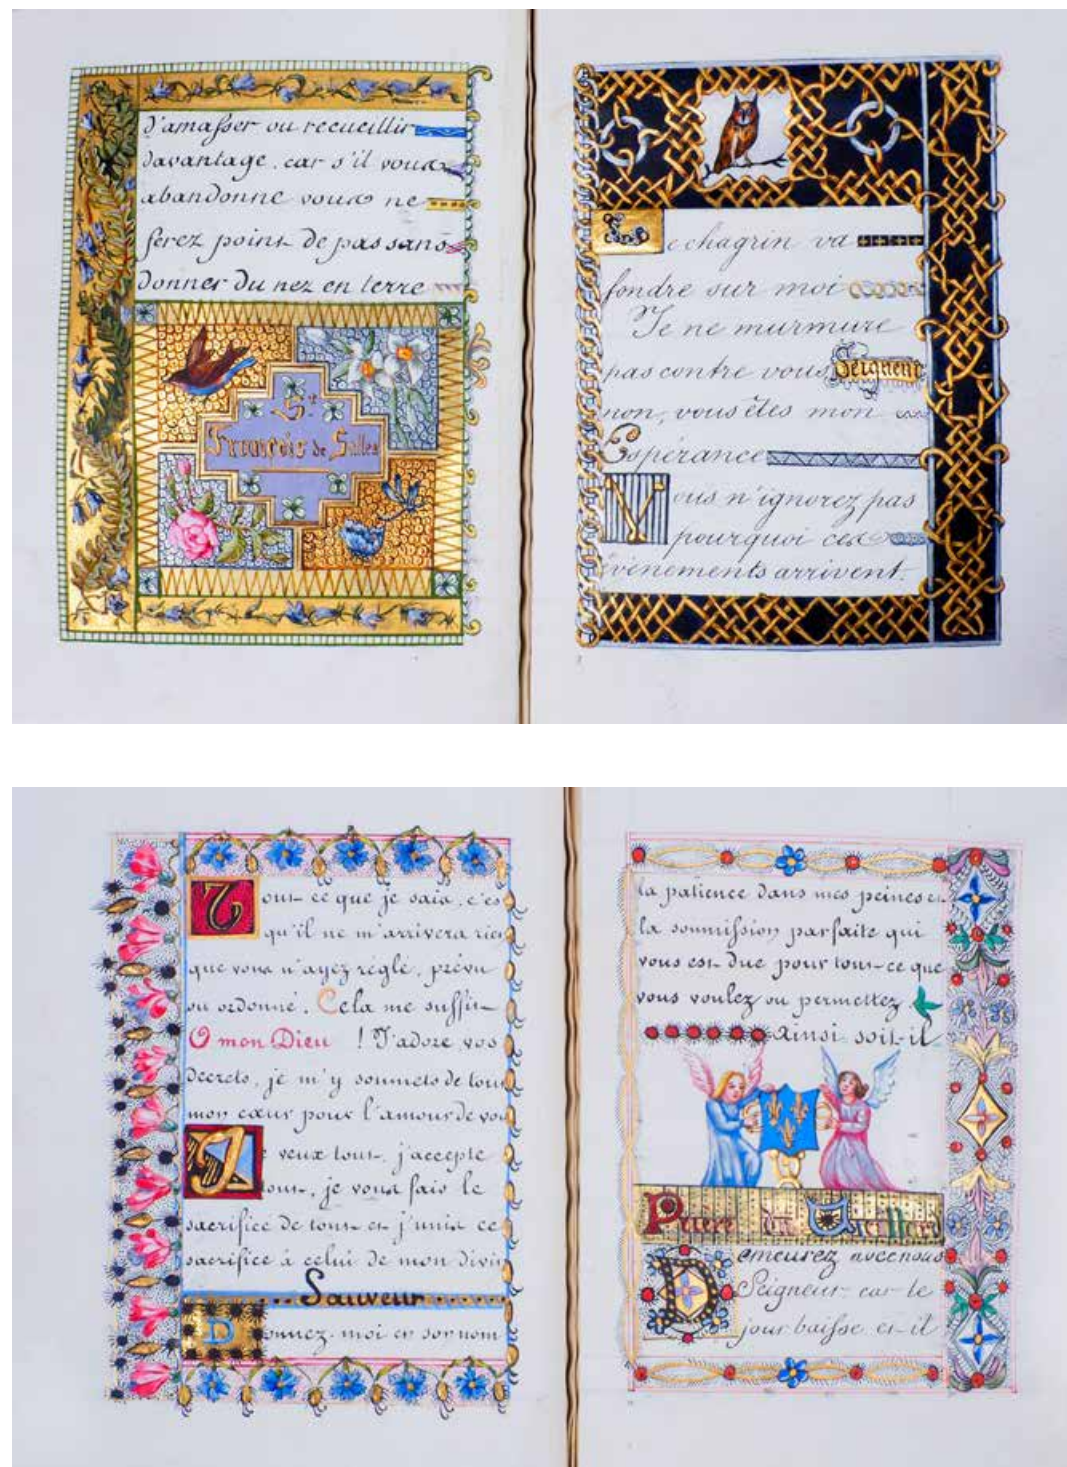 d'amasser ou recueillir
davantage, car s'il vous
abandonne vous ne
ferez point de pas sans
donner du nez en terre
St
François de Salles
Le chagrin va
fondre sur moi
Je ne murmure
pas contre vous Seigneur
non, vous êtes mon
Espérance
Vous n'ignorez pas
pourquoi ces
évènements arrivent.
Tout ce que je sais, c'es
qu'il ne m'arrivera rien
que vous n'ayez réglé, prévu
ou ordonné. Cela me suffit
O mon Dieu ! J'adore vos
décrets, je m'y soumets de tout
mon cœur pour l'amour de vou
Je veux tout, j'accepte
tout, je vous fais le
sacrifice de tout et j'unis ce
sacrifice à celui de mon divin
Sauveur
Donnez-moi en son nom
la patience dans mes peines et
la soumission parfaite qui
vous est due pour tout ce que
vous voulez ou permettez
ainsi soit-il
Prière du
Demeurez avec nous
Seigneur car le
jour baisse et il